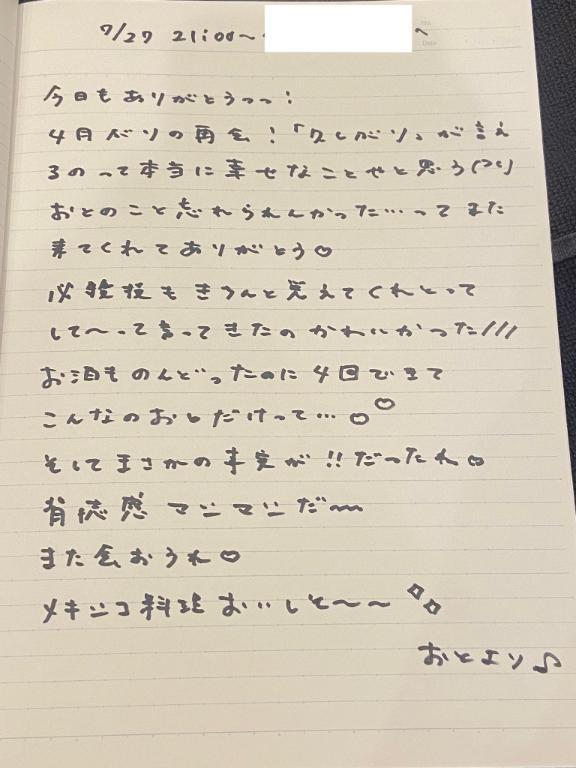 7/27 21:00〜 へ
今日もありがとうっっ!
4月ぶりの再会!「久しぶり」が言え
るのって本当に幸せなことやと思う
おとのこと忘れられんかった…ってまた
来てくれてありがとう♡
必殺技もきちんと覚えてくれとって
して〜って言ってきたのかわいかった///
お酒ものんどったのに4回できて
こんなのおとだけって…♡♡
そしてまさかの事実が!!だったね♡
背徳感でいっぱいだ〜
また会おうね♡
メキシコ料理おいしそ〜〜
おとより♪